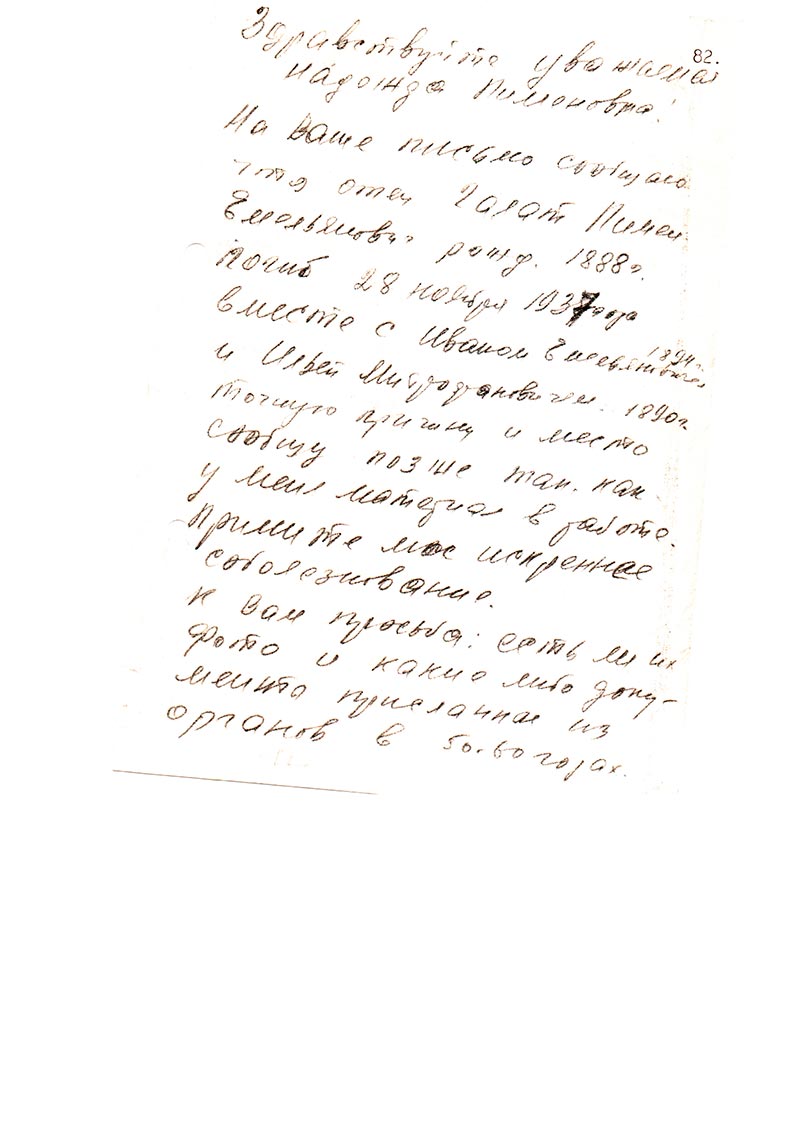 82.
Здравствуйте уважаемая
Надежда Пимоновна!
На Ваше письмо сообщаю
что отец Галат Пимен
Емельянович рожд. 1888 г.
погиб 28 ноября 1937 года
1894 г.
вместе с Иваном Емельяновичем
и Ильей Митрофановичем. 1890 г.
точную причину и место
сообщу позже так. как
у меня материал в работе.
Примите мое искреннее
соболезнование.
к Вам просьба: есть ли их
фото и какие либо доку-
мента присланные из
органов в 50-60 годах.